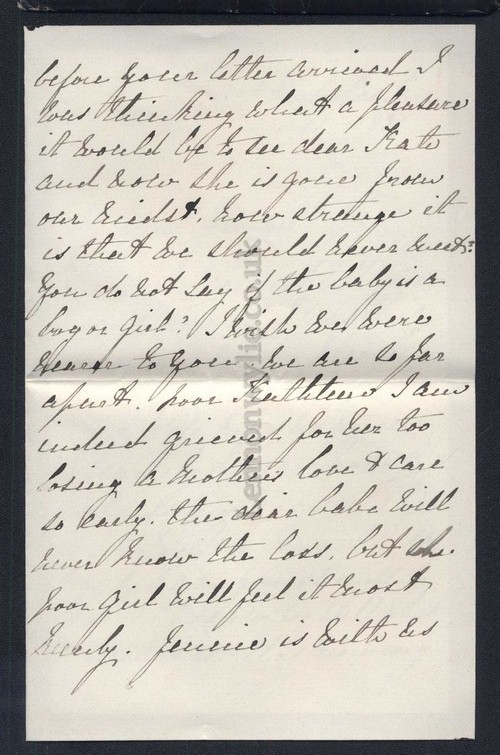 before your letter arrived I
was thinking what a pleasure
it would be to see dear Kate
and now she is gone from
our midst, how strange it
is that we should never meet?
You do not say if the baby is a
boy or girl? I wish we were
nearer to you, we are so far
apart. poor Kathleen I am
indeed grieved for her too
losing a mothers love & care
so early. the dear babe will
never know the loss, but she
poor girl will feel it most
keenly. Jennie is with us
lennonwylie.co.uk